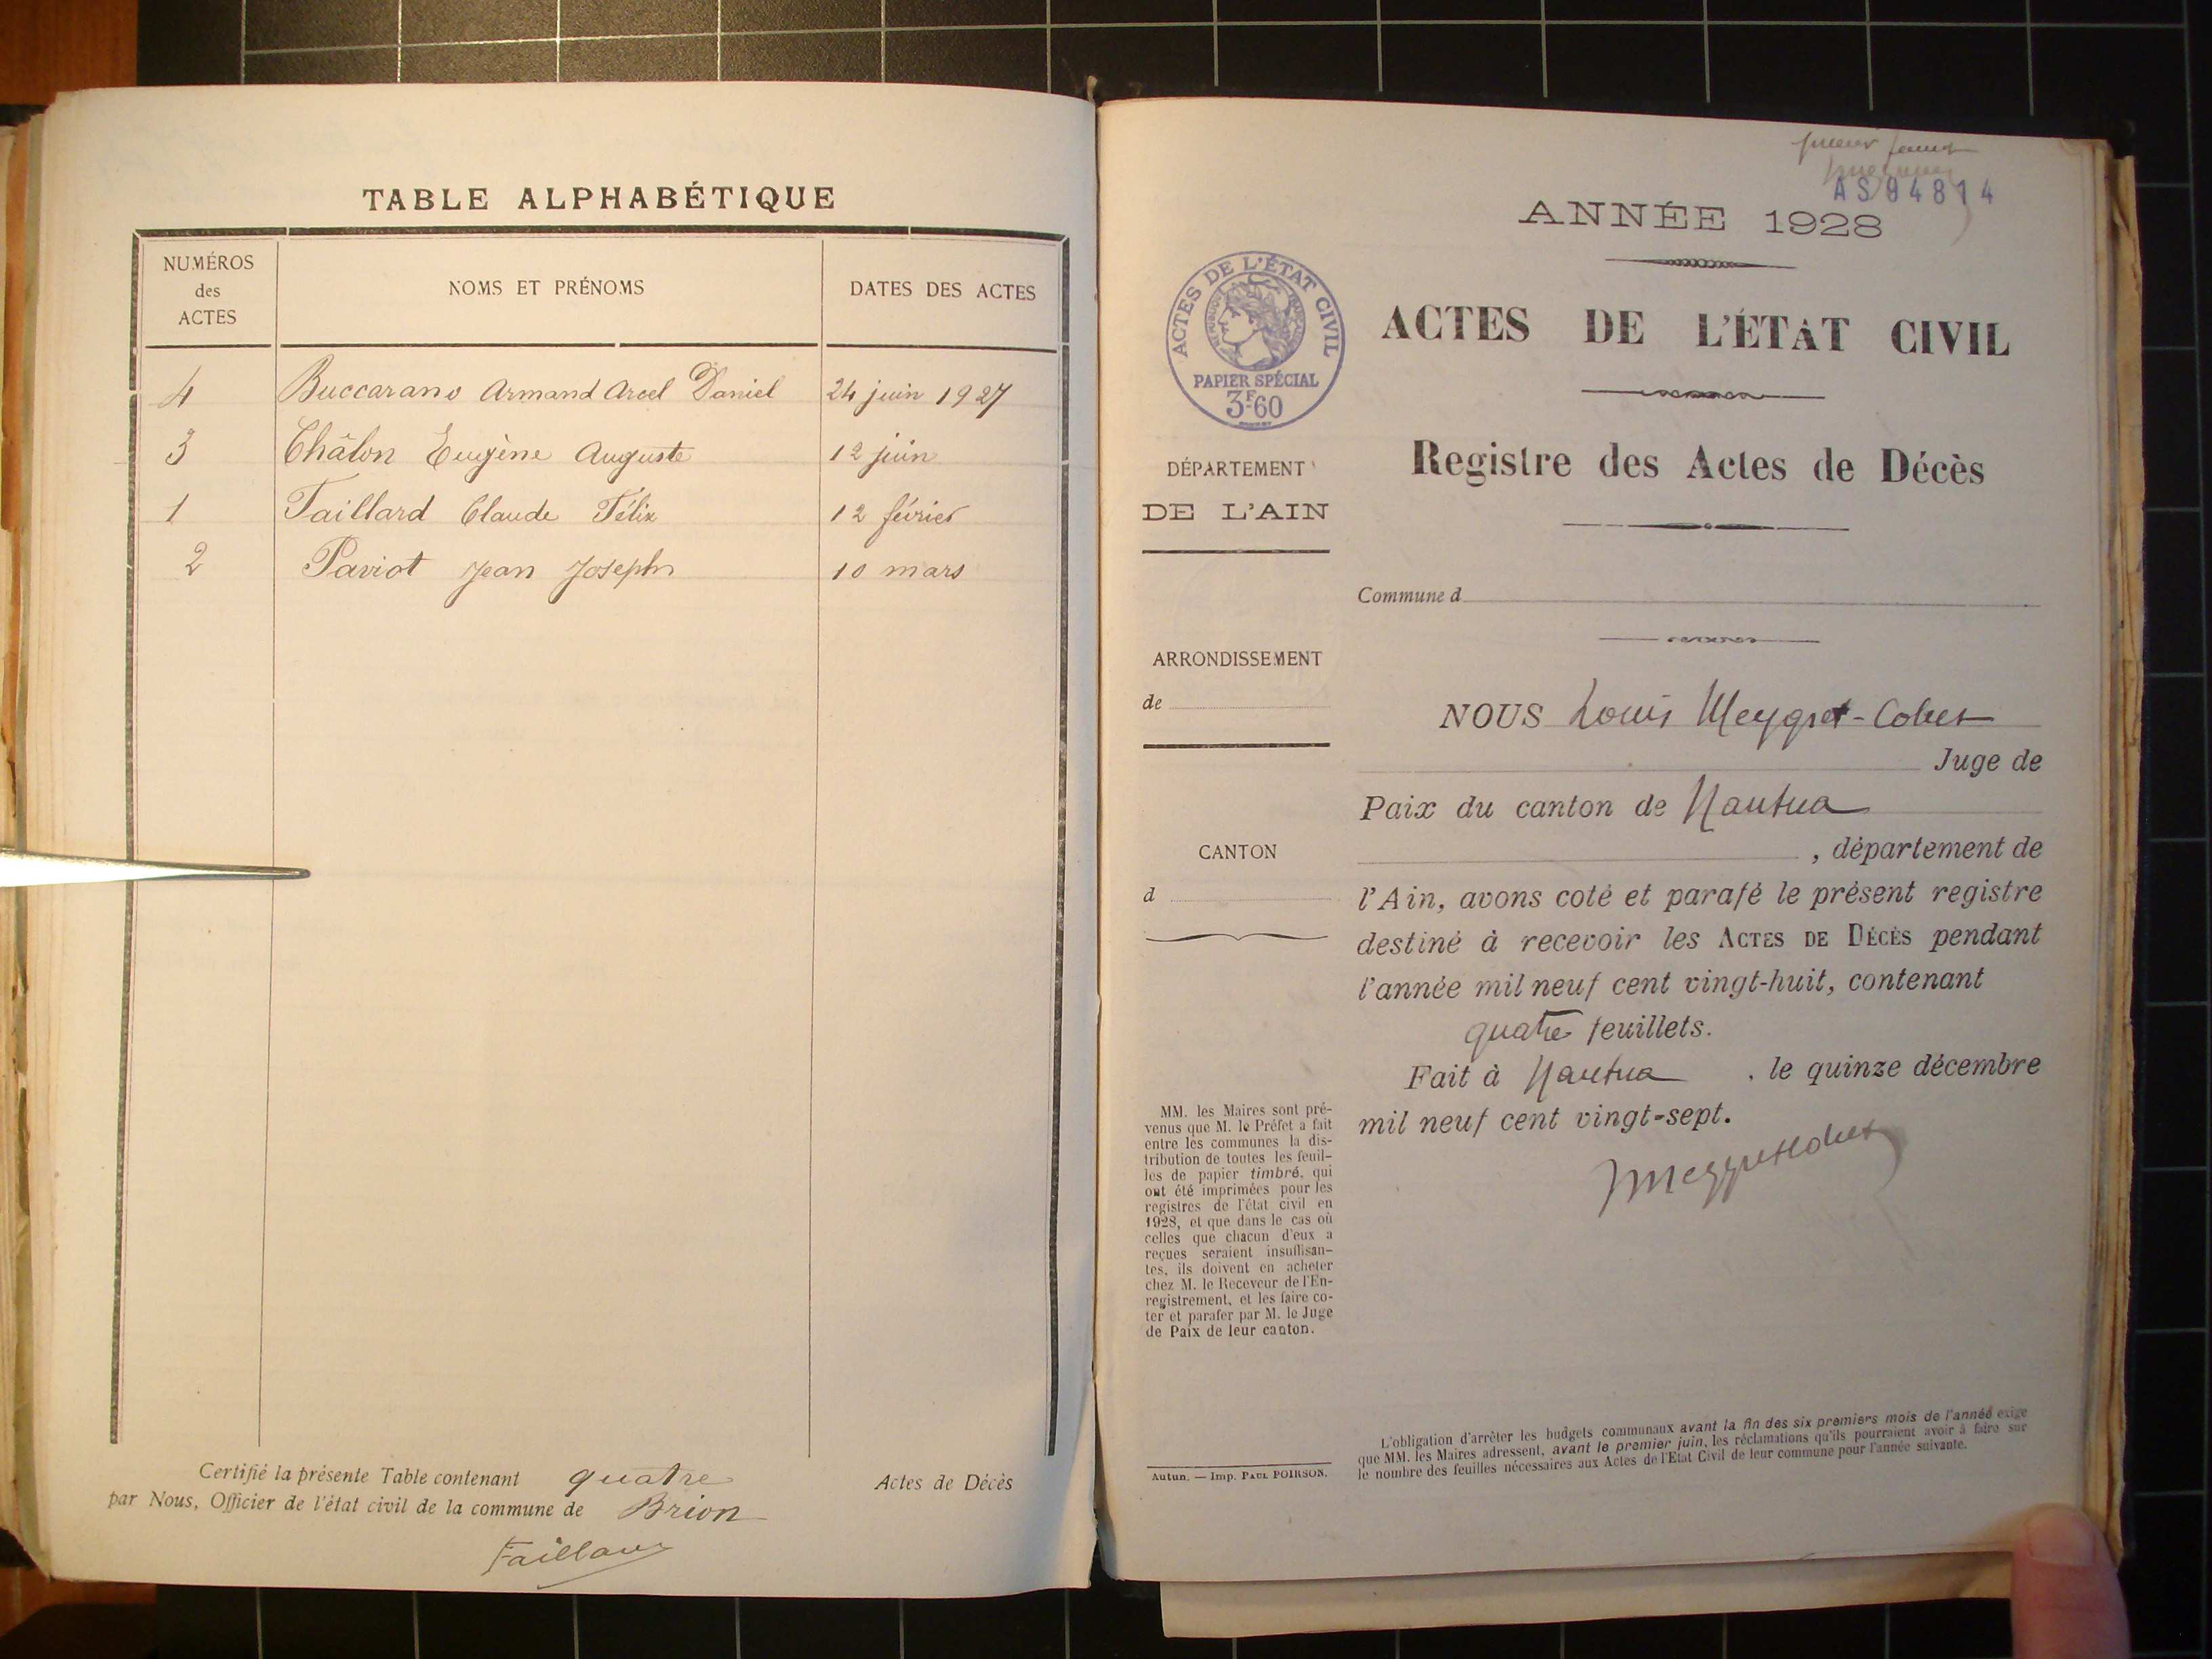 TABLE ALPHABÉTIQUE
NUMÉROS
des
ACTES
NOMS ET PRÉNOMS
DATES DES ACTES
4 Buccarano Armand Arcel Daniel 24 juin 1927
3 Châlon Eugène Auguste 12 juin
1 Faillard Claude Félix 12 février
2 Paviot Jean Joseph 10 mars
Certifié la présente Table contenant quatre Actes de Décès
par Nous, Officier de l'état civil de la commune de Brion
premier
AS 94814
ANNÉE 1928
ACTES DE L'ÉTAT CIVIL
RÉPUBLIQUE FRANÇAISE
PAPIER SPÉCIAL
3F60
ACTES DE L'ÉTAT CIVIL
Registre des Actes de Décès
DÉPARTEMENT
DE L'AIN
Commune d
ARRONDISSEMENT
de
CANTON
d
NOUS Louis Meygret-Collet
Juge de
Paix du canton de Nantua
, département de
l'Ain, avons coté et parafé le présent registre
destiné à recevoir les ACTES DE DÉCÈS pendant
l'année mil neuf cent vingt-huit, contenant
quatre feuillets.
Fait à Nantua, le quinze décembre
mil neuf cent vingt-sept.
MM. les Maires sont pré-
venus que M. le Préfet a fait
entre les communes la dis-
tribution de toutes les feuil-
les de papier timbré, qui
ont été imprimées pour les
registres de l'état civil en
1928, et que dans le cas où
celles que chacun d'eux a
reçues seraient insuffisan-
tes, ils doivent en acheter
chez M. le Receveur de l'En-
registrement, et les faire co-
ter et parafer par M. le Juge
de Paix de leur canton.
Autun. — Imp. PAUL POIRSON.
L'obligation d'arrêter les budgets communaux avant la fin des six premiers mois de l'année exige
que MM. les Maires adressent, avant le premier juin, les réclamations qu'ils pourraient avoir à faire sur
le nombre des feuilles nécessaires aux Actes de l'État Civil de leur commune pour l'année suivante.